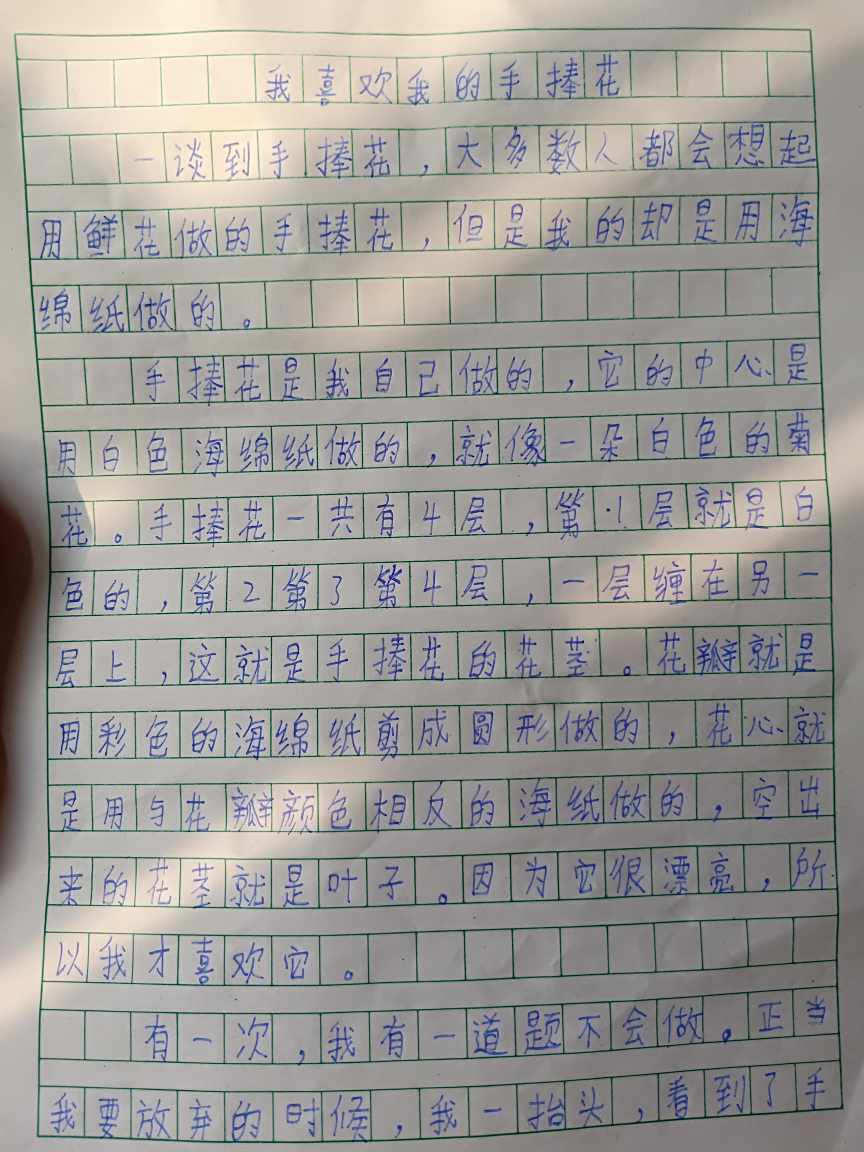 我喜欢我的手捧花
一谈到手捧花，大多数人都会想起
用鲜花做的手捧花，但是我的却是用海
绵纸做的。
手捧花是我自己做的，它的中心是
用白色海绵纸做的，就像一朵白色的菊
花。手捧花一共有4层，第1层就是白
色的，第2第3第4层，一层缠在另一
层上，这就是手捧花的花茎。花瓣就是
用彩色的海绵纸剪成圆形做的，花心就
是用与花瓣颜色相反的海纸做的，空出
来的花茎就是叶子。因为它很漂亮，所
以我才喜欢它。
有一次，我有一道题不会做。正当
我要放弃的时候，我一抬头，看到了手